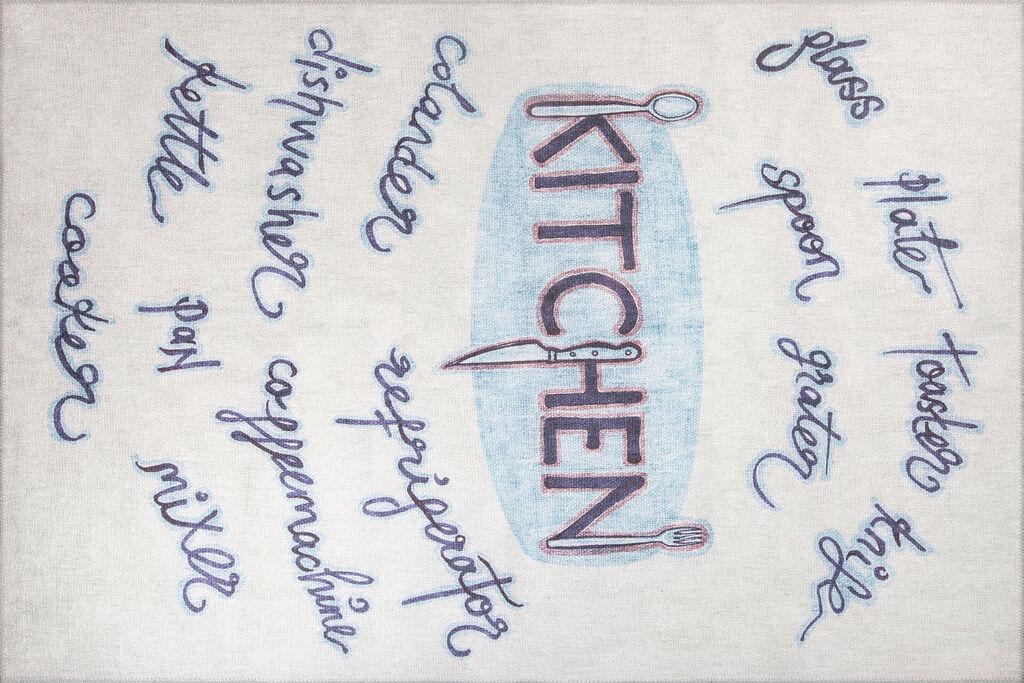 glass plate toaster knife
spoon grater
KITCHEN
colander refrigerator
dishwasher coffemachine
kettle pan mixer
cooker